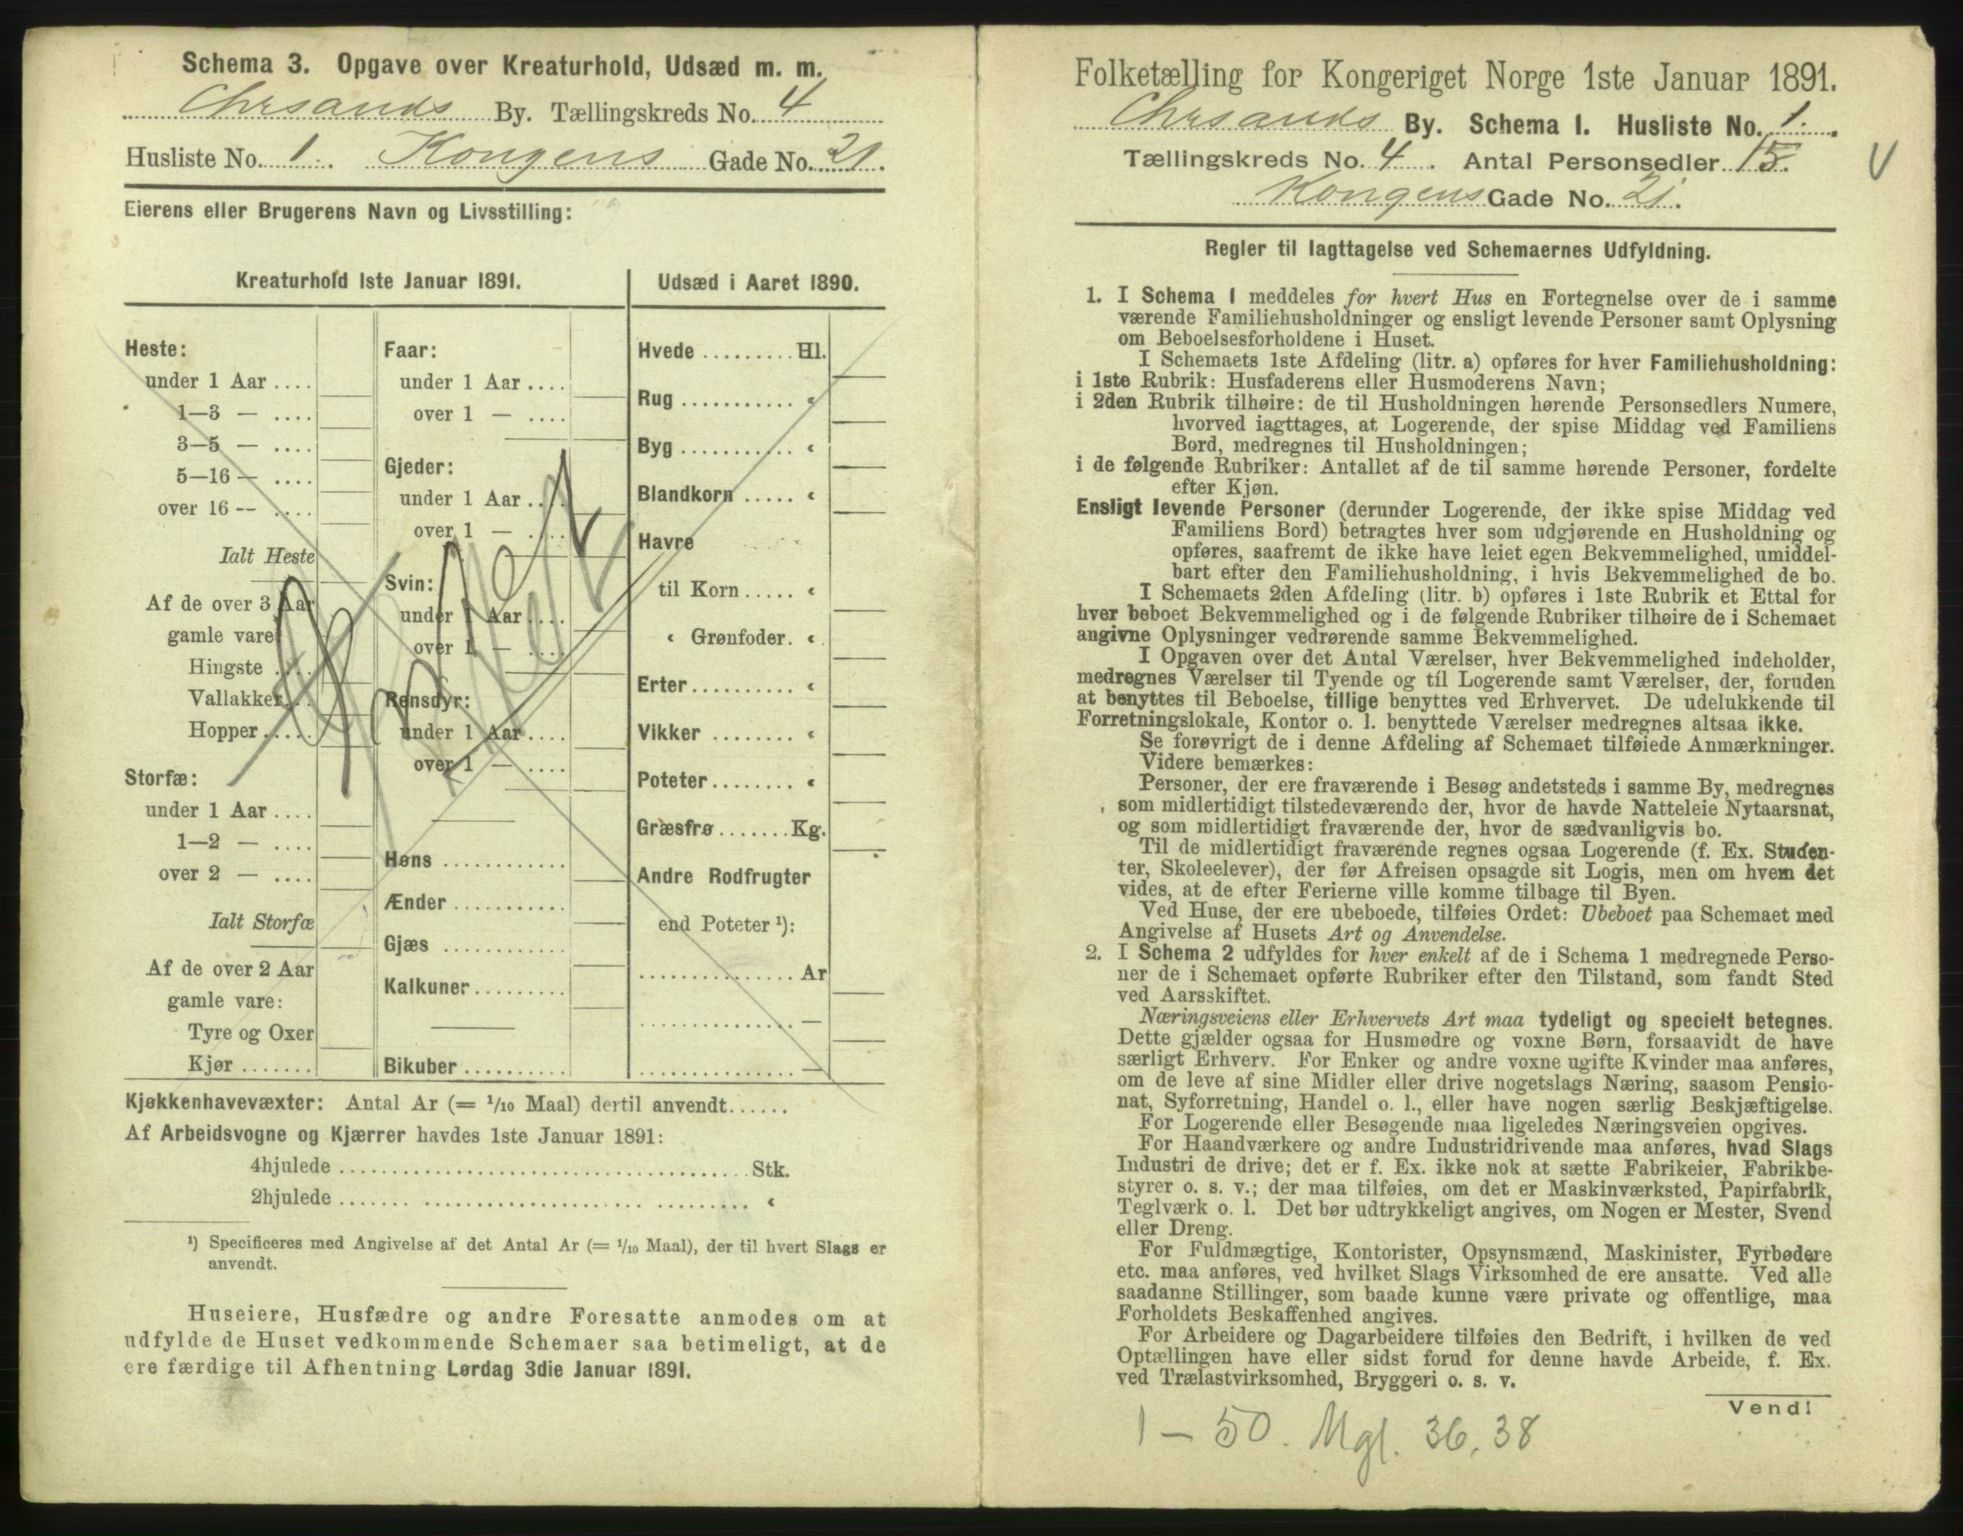 Schema 3. Opgave over Kreaturhold, Udsæd m. m.
Chrsands By. Tællingskreds No. 4
Husliste No. 1. Kongens Gade No. 21.
Eierens eller Brugerens Navn og Livsstilling:
Kreaturhold 1ste Januar 1891.
Heste:
under 1 Aar ....
1—3 — ....
3—5 — ....
5—16 — ....
over 16 -- ....
Ialt Heste
Af de over 3 Aar
gamle vare
Hingste ....
Vallakker...
Hopper.....
Storfæ:
under 1 Aar ....
1—2 — ....
over 2 — ....
Ialt Storfæ
Af de over 2 Aar
gamle vare:
Tyre og Oxer
Kjør .......
Faar:
under 1 Aar ....
over 1 — ....
Gjeder:
under 1 Aar ....
over 1 — ....
Svin:
under 1 Aar ....
over 1 — ....
Rensdyr:
under 1 Aar ....
over 1 — ....
Høns ............
Ænder ...........
Gjæs ............
Kalkuner.........
Bikuber ..........
Udsæd i Aaret 1890.
Hvede ......... Hl.
Rug ........... «
Byg ........... «
Blandkorn ..... «
Havre
til Korn ..... «
« Grønfoder. «
Erter.......... «
Vikker ........ «
Poteter........ «
Græsfrø.......Kg.
Andre Rodfrugter
end Poteter ¹):
............... Ar
............... —
............... —
Kjøkkenhavevæxter: Antal Ar (= 1/10 Maal) dertil anvendt......
Af Arbeidsvogne og Kjærrer havdes 1ste Januar 1891:
4hjulede ........................................ Stk.
2hjulede ........................................ «
¹) Specificeres med Angivelse af det Antal Ar (= 1/10 Maal), der til hvert Slags er
anvendt.
Huseiere, Husfædre og andre Foresatte anmodes om at
udfylde de Huset vedkommende Schemaer saa betimeligt, at de
ere færdige til Afhentning Lørdag 3die Januar 1891.
Folketælling for Kongeriget Norge 1ste Januar 1891.
Chrsands By. Schema I. Husliste No. 1.
Tællingskreds No. 4. Antal Personsedler 15.
Kongens Gade No. 21.
Regler til Iagttagelse ved Schemaernes Udfyldning.
1. I Schema 1 meddeles for hvert Hus en Fortegnelse over de i samme
værende Familiehusholdninger og ensligt levende Personer samt Oplysning
om Beboelsesforholdene i Huset.
I Schemaets 1ste Afdeling (litr. a) opføres for hver Familiehusholdning:
i 1ste Rubrik: Husfaderens eller Husmoderens Navn;
i 2den Rubrik tilhøire: de til Husholdningen hørende Personsedlers Numere,
hvorved iagttages, at Logerende, der spise Middag ved Familiens
Bord, medregnes til Husholdningen;
i de følgende Rubriker: Antallet af de til samme hørende Personer, fordelte
efter Kjøn.
Ensligt levende Personer (derunder Logerende, der ikke spise Middag ved
Familiens Bord) betragtes hver som udgjørende en Husholdning og
opføres, saafremt de ikke have leiet egen Bekvemmelighed, umiddel-
bart efter den Familiehusholdning, i hvis Bekvemmelighed de bo.
I Schemaets 2den Afdeling (litr. b) opføres i 1ste Rubrik et Ettal for
hver beboet Bekvemmelighed og i de følgende Rubriker tilhøire de i Schemaet
angivne Oplysninger vedrørende samme Bekvemmelighed.
I Opgaven over det Antal Værelser, hver Bekvemmelighed indeholder,
medregnes Værelser til Tyende og til Logerende samt Værelser, der, foruden
at benyttes til Beboelse, tillige benyttes ved Erhvervet. De udelukkende til
Forretningslokale, Kontor o. l. benyttede Værelser medregnes altsaa ikke.
Se forøvrigt de i denne Afdeling af Schemaet tilføiede Anmærkninger.
Videre bemærkes:
Personer, der ere fraværende i Besøg andetsteds i samme By, medregnes
som midlertidigt tilstedeværende der, hvor de havde Natteleie Nytaarsnat,
og som midlertidigt fraværende der, hvor de sædvanligvis bo.
Til de midlertidigt fraværende regnes ogsaa Logerende (f. Ex. Studen-
ter, Skoleelever), der før Afreisen opsagde sit Logis, men om hvem det
vides, at de efter Ferierne ville komme tilbage til Byen.
Ved Huse, der ere ubeboede, tilføies Ordet: Ubeboet paa Schemaet med
Angivelse af Husets Art og Anvendelse.
2. I Schema 2 udfyldes for hver enkelt af de i Schema 1 medregnede Perso-
ner de i Schemaet opførte Rubriker efter den Tilstand, som fandt Sted
ved Aarsskiftet.
Næringsveiens eller Erhvervets Art maa tydeligt og specielt betegnes.
Dette gjælder ogsaa for Husmødre og voxne Børn, forsaavidt de have
særligt Erhverv. For Enker og andre voxne ugifte Kvinder maa anføres,
om de leve af sine Midler eller drive nogetslags Næring, saasom Pensio-
nat, Syforretning, Handel o. l., eller have nogen særlig Beskjæftigelse.
For Logerende eller Besøgende maa ligeledes Næringsveien opgives.
For Haandværkere og andre Industridrivende maa anføres, hvad Slags
Industri de drive; det er f. Ex. ikke nok at sætte Fabrikeier, Fabrikbe-
styrer o. s. v.; der maa tilføies, om det er Maskinværksted, Papirfabrik,
Teglværk o. l. Det bør udtrykkeligt angives, om Nogen er Mester, Svend
eller Dreng.
For Fuldmægtige, Kontorister, Opsynsmænd, Maskinister, Fyrbødere
etc. maa anføres, ved hvilket Slags Virksomhed de ere ansatte. Ved alle
saadanne Stillinger, som baade kunne være private og offentlige, maa
Forholdets Beskaffenhed angives.
For Arbeidere og Dagarbeidere tilføies den Bedrift, i hvilken de ved
Optællingen have eller sidst forud for denne havde Arbeide, f. Ex.
ved Trælastvirksomhed, Bryggeri o. s. v.
Vend!
1 — 50. Mgl. 36, 38